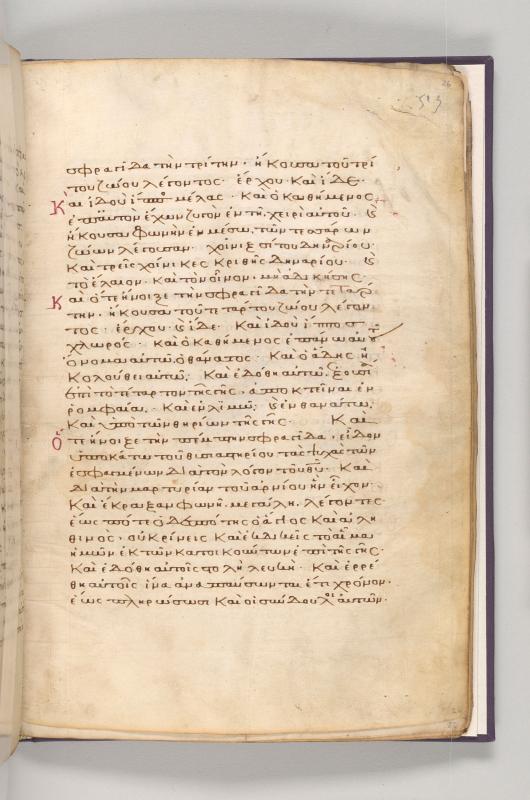 26
53
σφραγίδα τὴν τρίτην· ἤκουσα τοῦ τρί
του ζώου λέγοντος· ἔρχου καὶ ἴδε·
Καὶ ἰδοὺ ἵππος μέλας· καὶ ὁ καθήμενος
ἐπ' αὐτὸν ἔχων ζυγὸν ἐν τῆ χειρὶ αὐτοῦ· ϗ
ἤκουσα φωνὴν ἐν μέσω τῶν τεσσάρων
ζώων λέγουσαν· χοῖνιξ σίτου δηναρίου·
καὶ τρεῖς χοίνικες κριθῆς δηναρίου· ϗ
τὸ ἔλαιον καὶ τὸν οἶνον, μὴ ἀδικήσης·
Καὶ ὅτε ἤνοιξε τὴν σφραγίδα τὴν τετάρ
την, ἤκουσα τοῦ τετάρτου ζώου λέγον
τος· ἔρχου ϗ ἴδε· καὶ ἰδοὺ ἵππος
χλωρός· καὶ ὁ καθήμενος ἐπάνω αὐτοῦ
ὄνομα αὐτῶ, ὁ θάνατος· καὶ ὁ ἅδης ἠ
κολούθει αὐτῶ· καὶ ἐδόθη αὐτῶ, ἐξουσία
ἐπὶ τὸ τέταρτον τῆς γῆς, ἀποκτεῖναι ἐν
ρομφαία· καὶ ἐν λιμῶ· ϗ ἐν θανάτω·
καὶ ὑπὸ τῶν θηρίων τῆς γῆς· Καὶ
Ὅτε ἤνοιξε τὴν πέμπτην σφραγίδα, εἶδον
ὑποκάτω τοῦ θυσιαστηρίου τὰς ψυχὰς τῶν
ἐσφαγμένων διὰ τὸν λόγον τοῦ θυ· καὶ
διὰ τὴν μαρτυρίαν τοῦ ἀρνίου ἣν εἶχον·
καὶ ἔκραξαν φωνῆ μεγάλη, λέγοντες·
ἕως πότε ὁ δεσπότης ὁ ἅγιος καὶ ἀλη
θινός· οὐ κρίνεις καὶ ἐκδικεῖς τὸ αἷμα
ἡμῶν ἐκ τῶν κατοικούντων ἐπὶ τῆς γῆς·
καὶ ἐδόθη αὐτοῖς στολὴ λευκή· καὶ ἐρρέ
θη αὐτοῖς ἵνα ἀναπαύσωνται ἔτι χρόνον·
ἕως πληρώσωσι καὶ οἱ σύνδουλοι αὐτῶν·